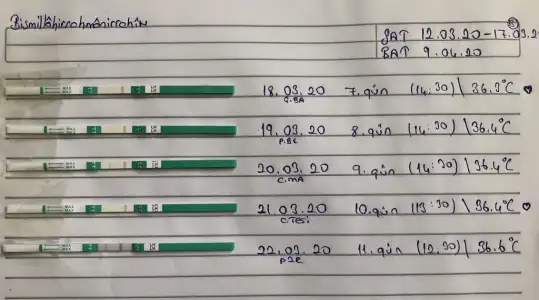 Bismillâhirrahmânirrahîm
SAT 12.03.20-17.03.2
BAT 9.04.20
18.03.20 7.gün (14:30) \ 36.3°C
Ç.BA
19.03.20 8.gün (14:30) \ 36.4°C
PBE
20.03.20 9.gün (14:30) \ 36.4°C
CMA
21.03.20 10.gün (13:30) \ 36.4°C
C.TESİ
22.03.20 11.gün (12.30) | 36.6°C
PZR